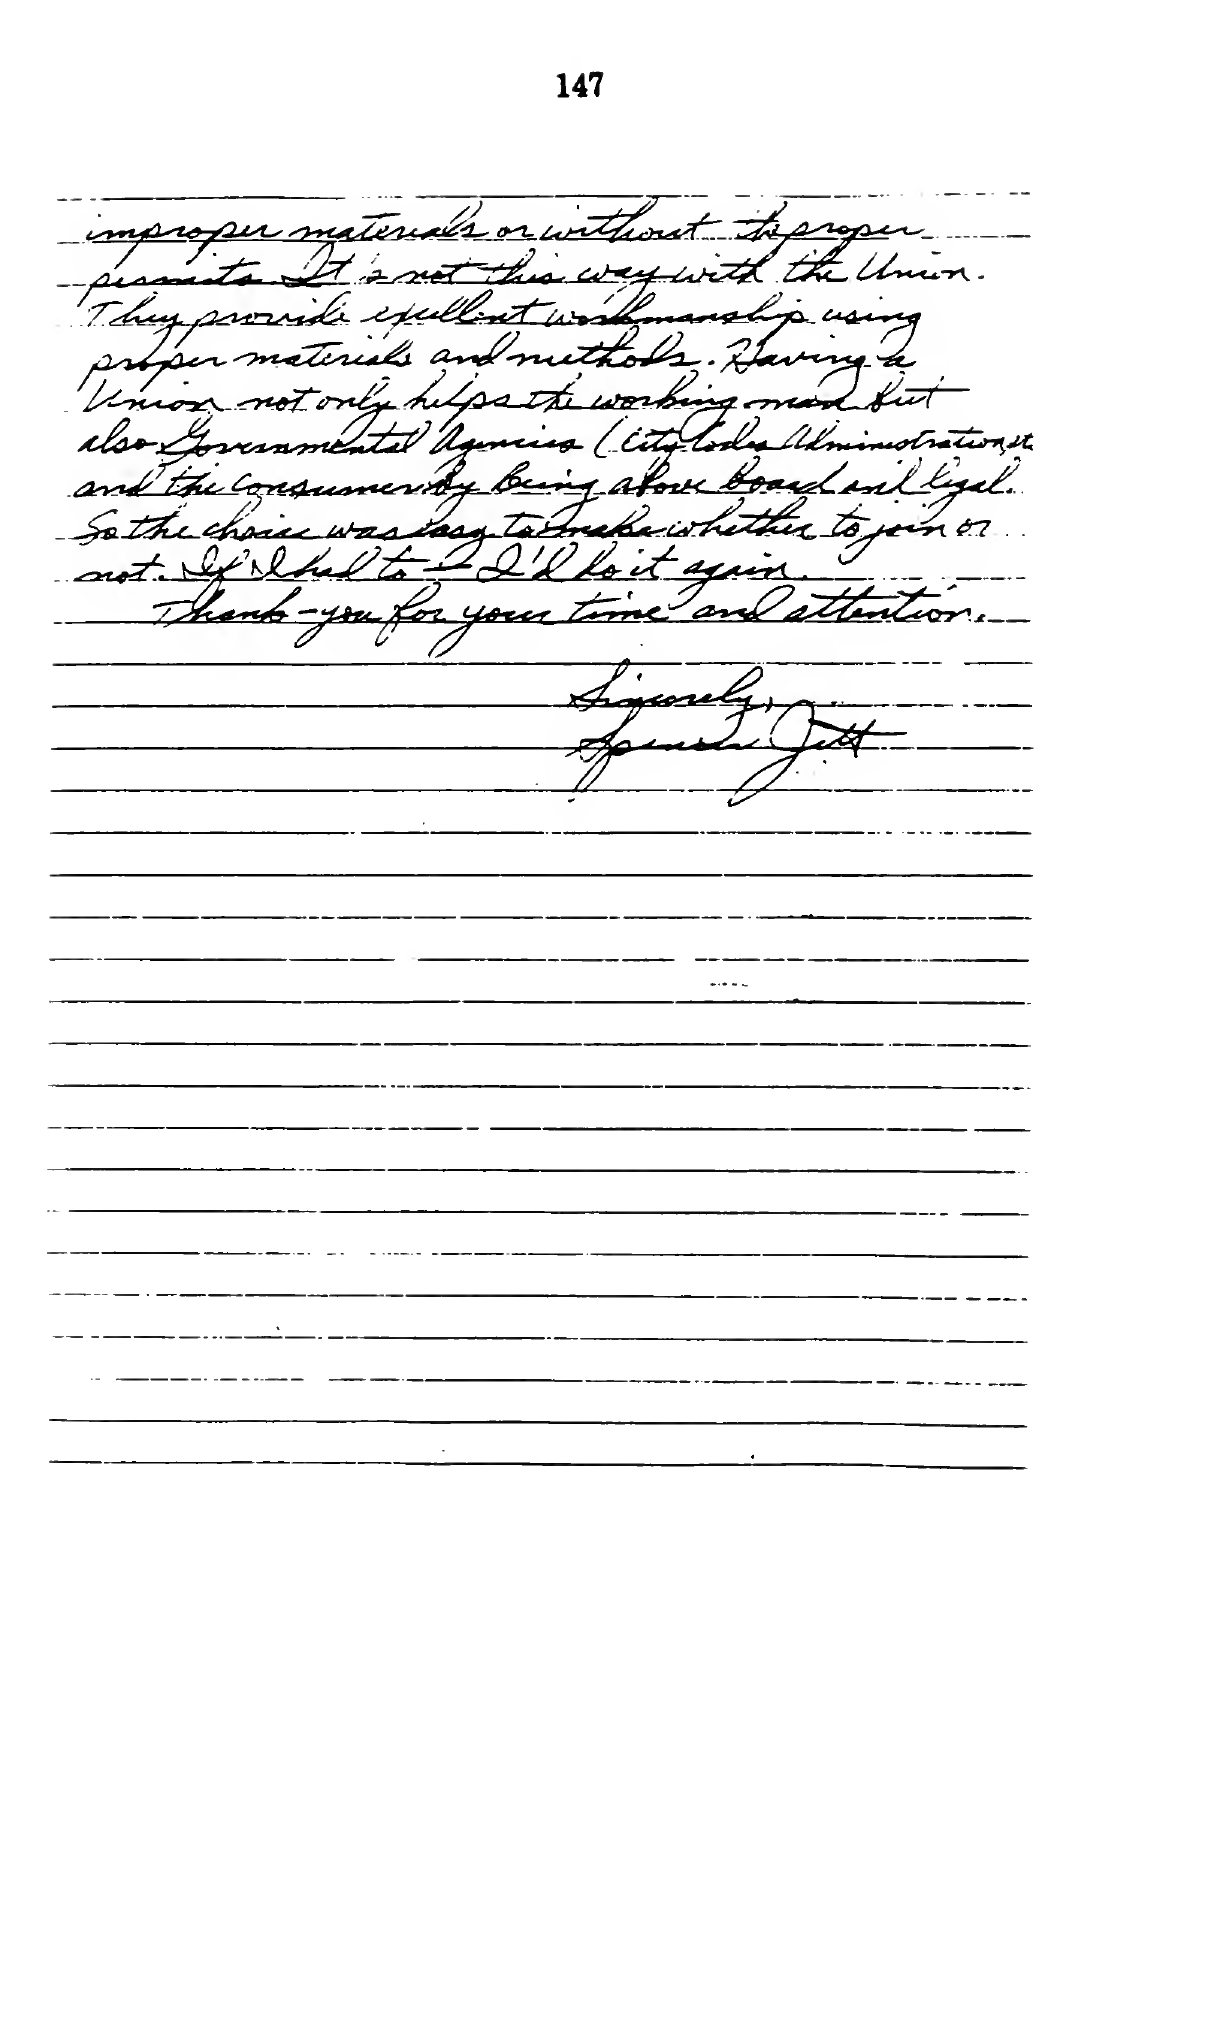 147
improper materials or without the proper
permits. It's not this way with the Union.
They provide excellent workmanship using
proper materials and methods. Having a
Union not only helps the working man but
also Governmental Agencies (City Codes Administration, etc.
and the consumer by being above board and legal.
So the choice was easy to make whether to join or
not. If I had to – I'd do it again.
Thank-you for your time and attention.
Sincerely,